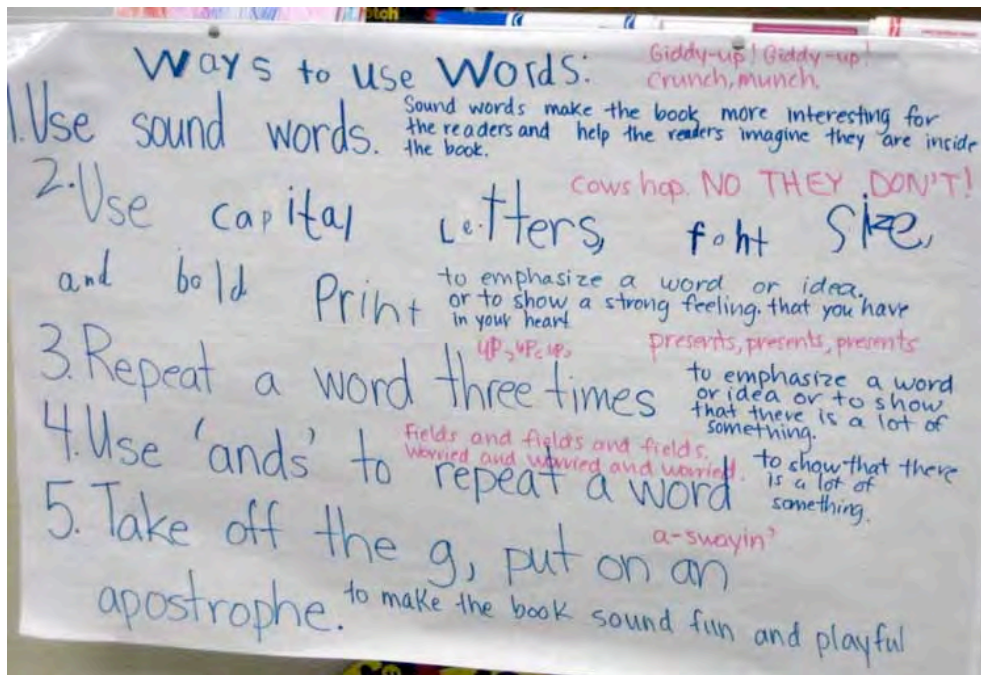 Ways to use Words:
Giddy-up! Giddy-up!
Crunch, munch.
1. Use sound words.
Sound words make the book more interesting for
the readers and help the readers imagine they are inside
the book.
cows hop. NO THEY DON'T!
2. Use capital Letters, font size,
and bold Print
to emphasize a word or idea.
or to show a strong feeling. that you have
in your heart
up, up, up,
presents, presents, presents
3. Repeat a word three times
to emphasize a word
or idea or to show
that there is a lot of
something.
Fields and fields and fields.
Worried and worried and worried.
4. Use 'ands' to repeat a word
to show that there
is a lot of
something.
a-swayin'
5. Take off the g, put on an
apostrophe.
to make the book sound fun and playful